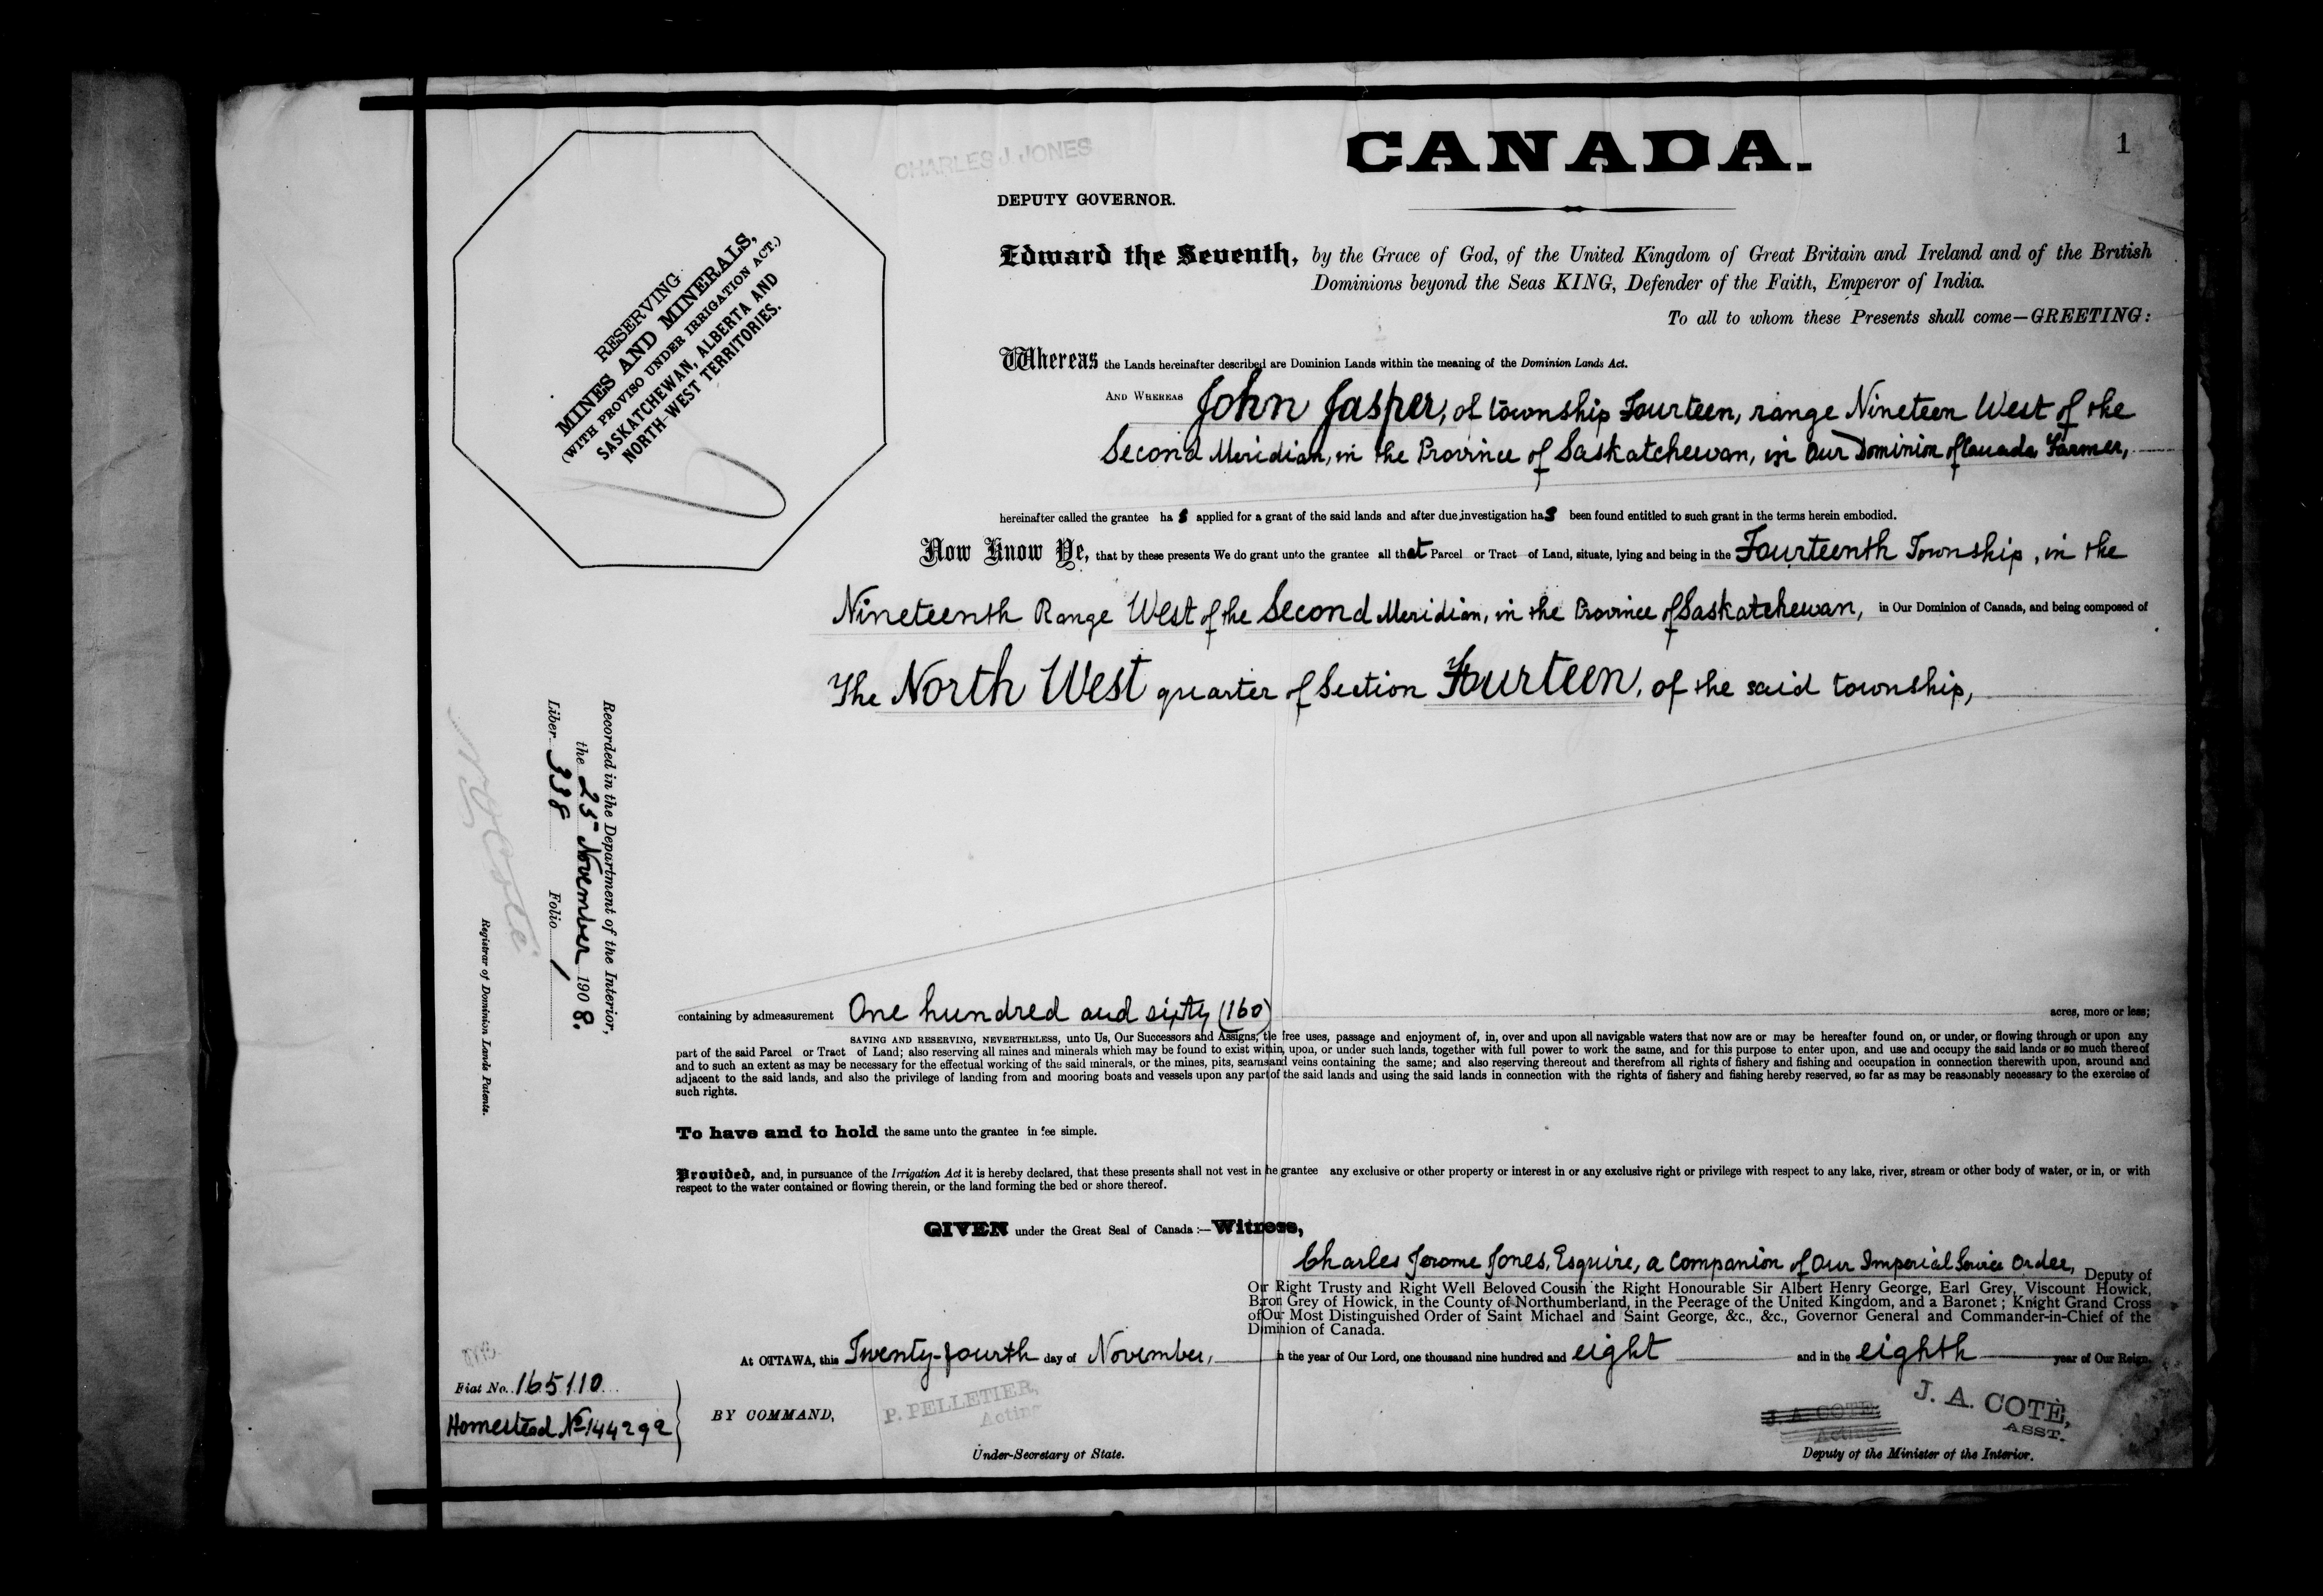 CANADA.
1
CHARLES J. JONES
DEPUTY GOVERNOR.
RESERVING
MINES AND MINERALS,
(WITH PROVISO UNDER IRRIGATION ACT.)
SASKATCHEWAN, ALBERTA AND
NORTH-WEST TERRITORIES.
Edward the Seventh, by the Grace of God, of the United Kingdom of Great Britain and Ireland and of the British
Dominions beyond the Seas KING, Defender of the Faith, Emperor of India.
To all to whom these Presents shall come—GREETING:
Whereas the Lands hereinafter described are Dominion Lands within the meaning of the Dominion Lands Act.
AND WHEREAS John Jasper, of township Fourteen, range Nineteen West of the
Second Meridian, in the Province of Saskatchewan, in Our Dominion of Canada Farmer,
hereinafter called the grantee has applied for a grant of the said lands and after due investigation has been found entitled to such grant in the terms herein embodied.
Now Know Ye, that by these presents We do grant unto the grantee all that Parcel or Tract of Land, situate, lying and being in the Fourteenth Township, in the
Nineteenth Range West of the Second Meridian, in the Province of Saskatchewan, in Our Dominion of Canada, and being composed of
The North West quarter of Section Fourteen, of the said township,
Recorded in the Department of the Interior,
the 25th November 1908.
Liber 338 Folio 1
N O Coté
Registrar of Dominion Lands Patents.
containing by admeasurement One hundred and sixty (160) acres, more or less;
SAVING AND RESERVING, NEVERTHELESS, unto Us, Our Successors and Assigns, the free uses, passage and enjoyment of, in, over and upon all navigable waters that now are or may be hereafter found on, or under, or flowing through or upon any
part of the said Parcel or Tract of Land; also reserving all mines and minerals which may be found to exist within, upon, or under such lands, together with full power to work the same, and for this purpose to enter upon, and use and occupy the said lands or so much thereof
and to such an extent as may be necessary for the effectual working of the said minerals, or the mines, pits, seams and veins containing the same; and also reserving thereout and therefrom all rights of fishery and fishing and occupation in connection therewith upon, around and
adjacent to the said lands, and also the privilege of landing from and mooring boats and vessels upon any part of the said lands and using the said lands in connection with the rights of fishery and fishing hereby reserved, so far as may be reasonably necessary to the exercise of
such rights.
To have and to hold the same unto the grantee in fee simple.
Provided, and, in pursuance of the Irrigation Act it is hereby declared, that these presents shall not vest in he grantee any exclusive or other property or interest in or any exclusive right or privilege with respect to any lake, river, stream or other body of water, or in, or with
respect to the water contained or flowing therein, or the land forming the bed or shore thereof.
GIVEN under the Great Seal of Canada :—Witness,
Charles Jerome Jones, Esquire, a Companion of Our Imperial Service Order, Deputy of
Our Right Trusty and Right Well Beloved Cousin the Right Honourable Sir Albert Henry George, Earl Grey, Viscount Howick,
Baron Grey of Howick, in the County of Northumberland, in the Peerage of the United Kingdom, and a Baronet; Knight Grand Cross
of Our Most Distinguished Order of Saint Michael and Saint George, &c., &c., Governor General and Commander-in-Chief of the
Dominion of Canada.
At OTTAWA, this Twenty-fourth day of November, in the year of Our Lord, one thousand nine hundred and eight and in the eighth year of Our Reign.
Fiat No. 165110
Homestead No 144292
BY COMMAND,
P. PELLETIER,
Acting
Under-Secretary of State.
J. A. COTE,
Acting
J. A. COTE,
ASST.
Deputy of the Minister of the Interior.